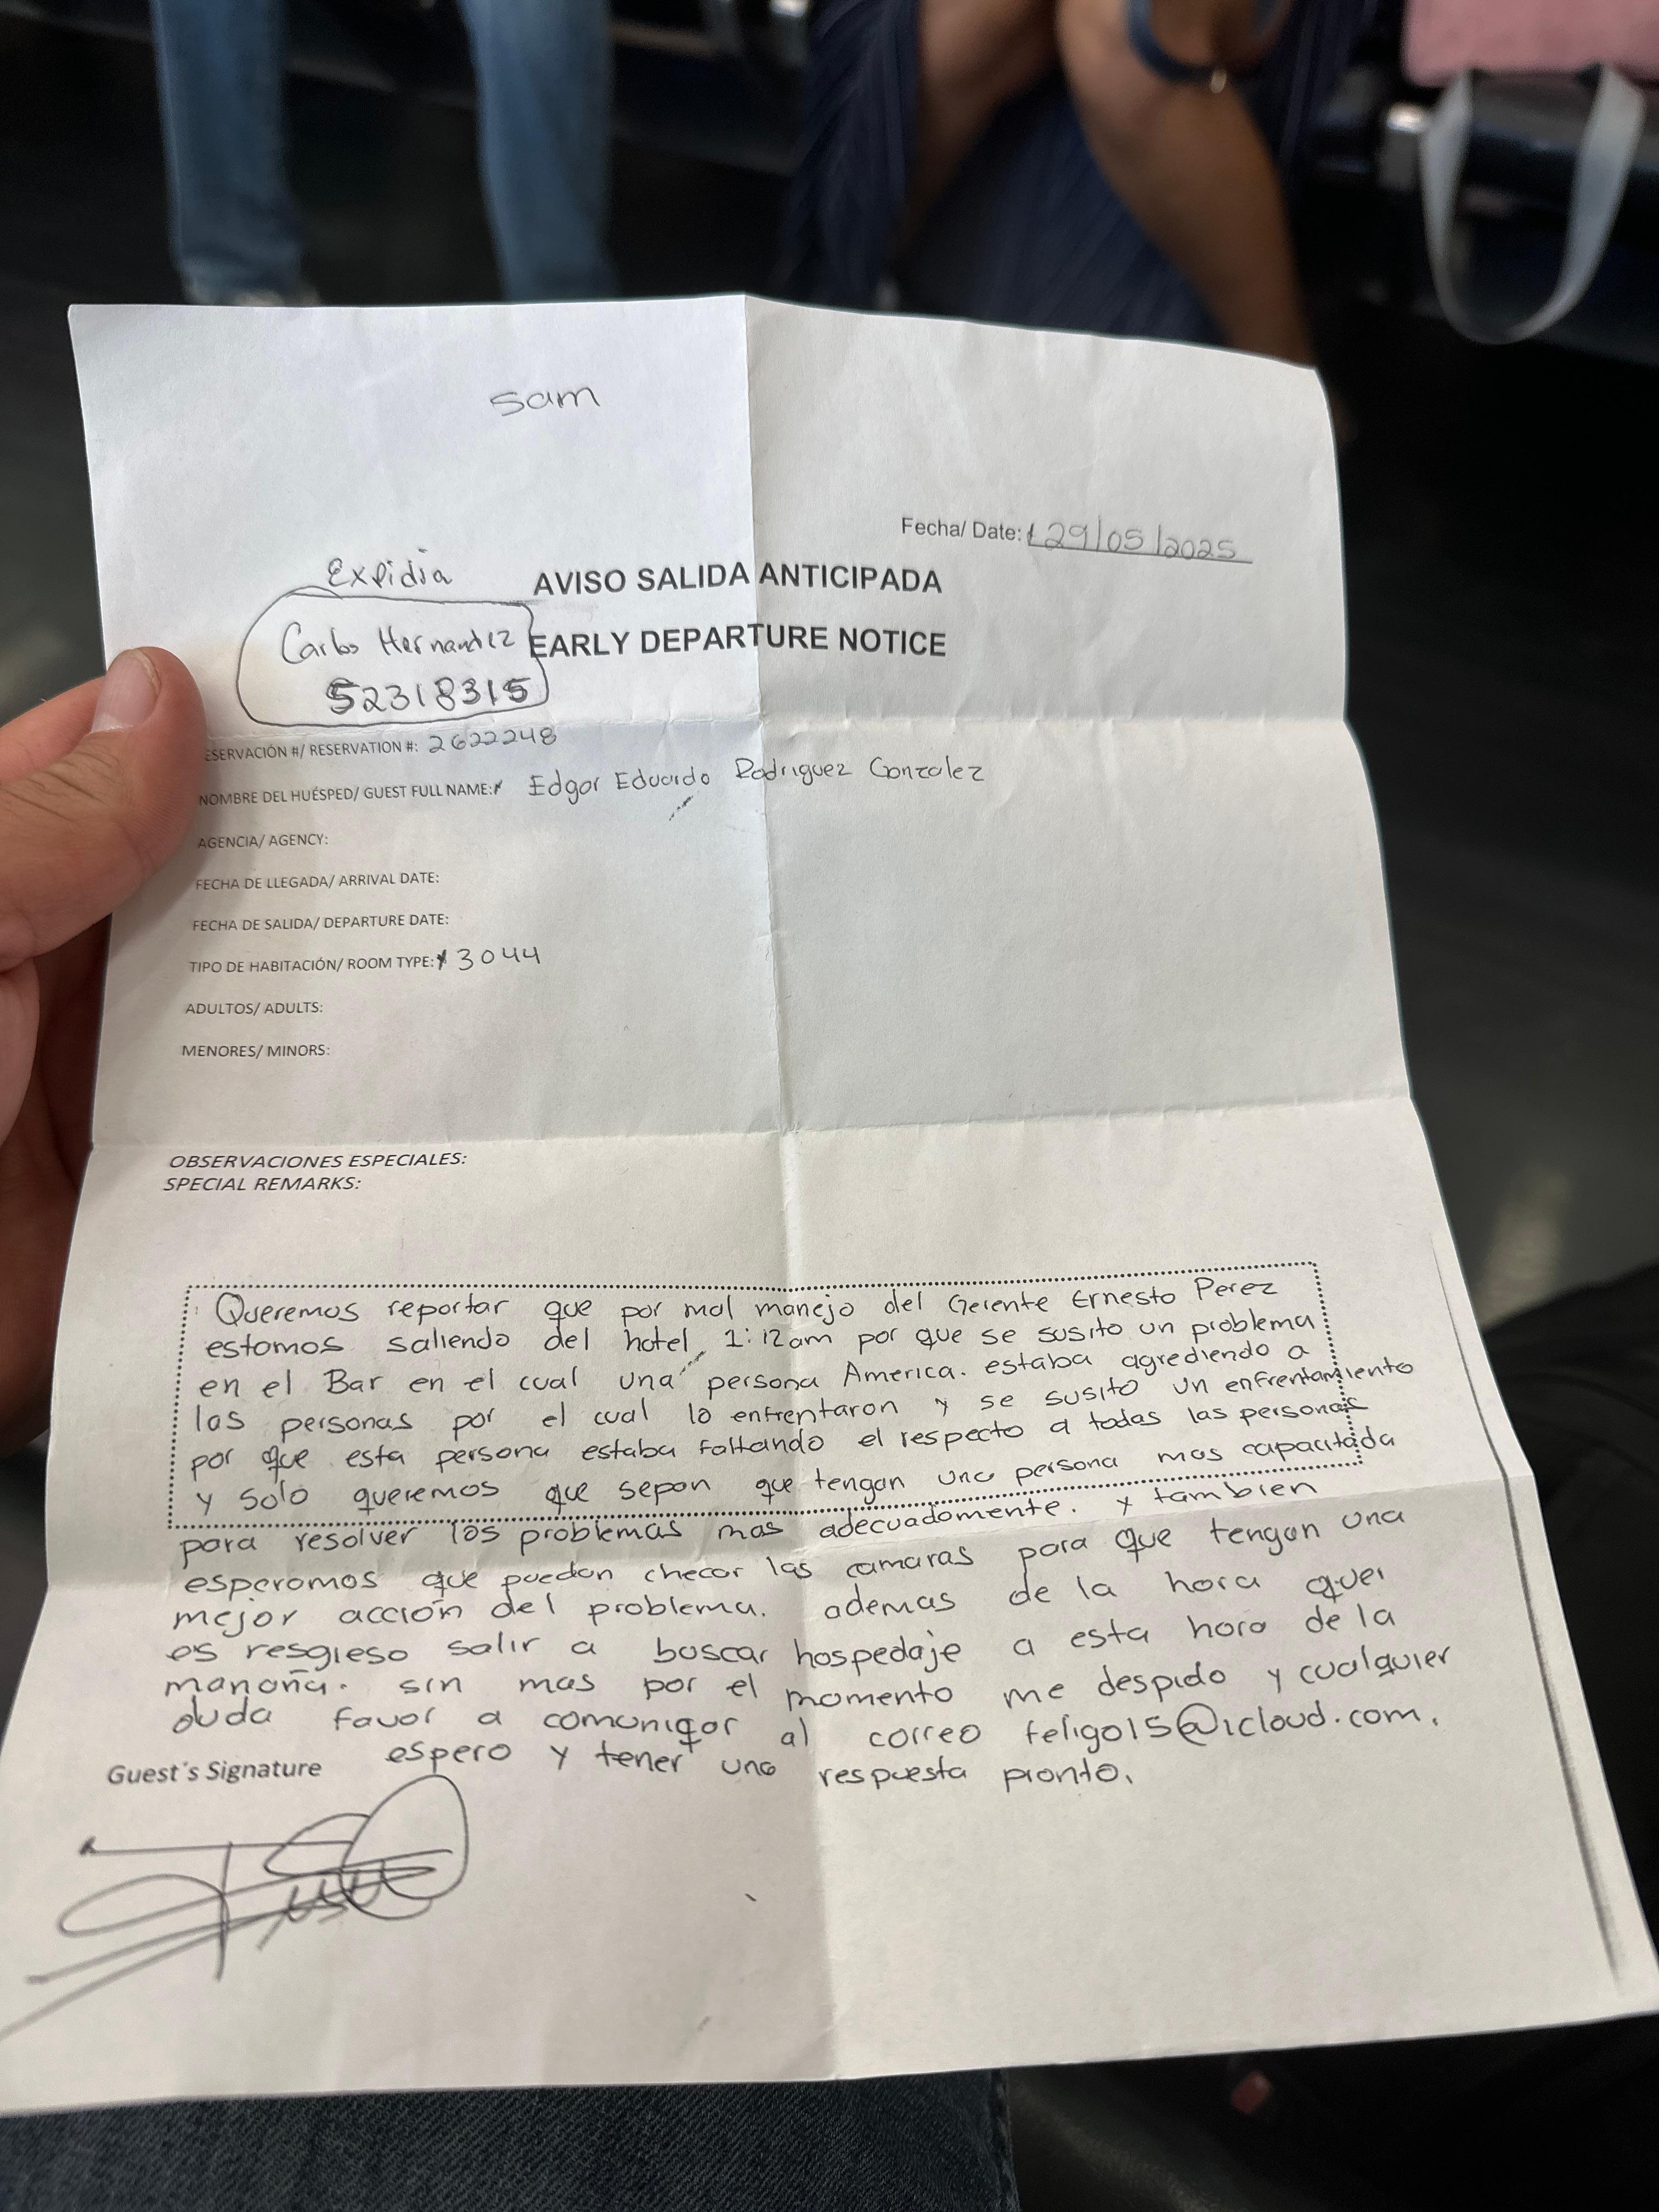 Sam
Fecha/ Date: 29/05/2025
Expidia
AVISO SALIDA ANTICIPADA
Carlos Hernandez
EARLY DEPARTURE NOTICE
52318315
ESERVACIÓN #/ RESERVATION #: 2622248
NOMBRE DEL HUÉSPED/ GUEST FULL NAME: Edgar Eduardo Rodriguez Gonzalez
AGENCIA/ AGENCY:
FECHA DE LLEGADA/ ARRIVAL DATE:
FECHA DE SALIDA/ DEPARTURE DATE:
TIPO DE HABITACIÓN/ ROOM TYPE: 3044
ADULTOS/ ADULTS:
MENORES/ MINORS:
OBSERVACIONES ESPECIALES:
SPECIAL REMARKS:
Queremos reportar que por mal manejo del Gerente Ernesto Perez
estamos saliendo del hotel 1:12am por que se susito un problema
en el Bar en el cual una persona America. estaba agrediendo a
las personas por el cual lo enfrentaron y se susito un enfrentamiento
por que esta persona estaba faltando el respecto a todas las personas
y solo queremos que sepan que tengan una persona mas capacitada
para resolver los problemas mas adecuadamente. y tambien
esperamos que puedan checar las camaras para que tengan una
mejor acción del problema. ademas de la hora que
es resgieso salir a buscar hospedaje a esta hora de la
manaña. sin mas por el momento me despido y cualquier
duda favor a comuniqar al correo feligo15@icloud.com.
espero y tener una respuesta pronto.
Guest's Signature